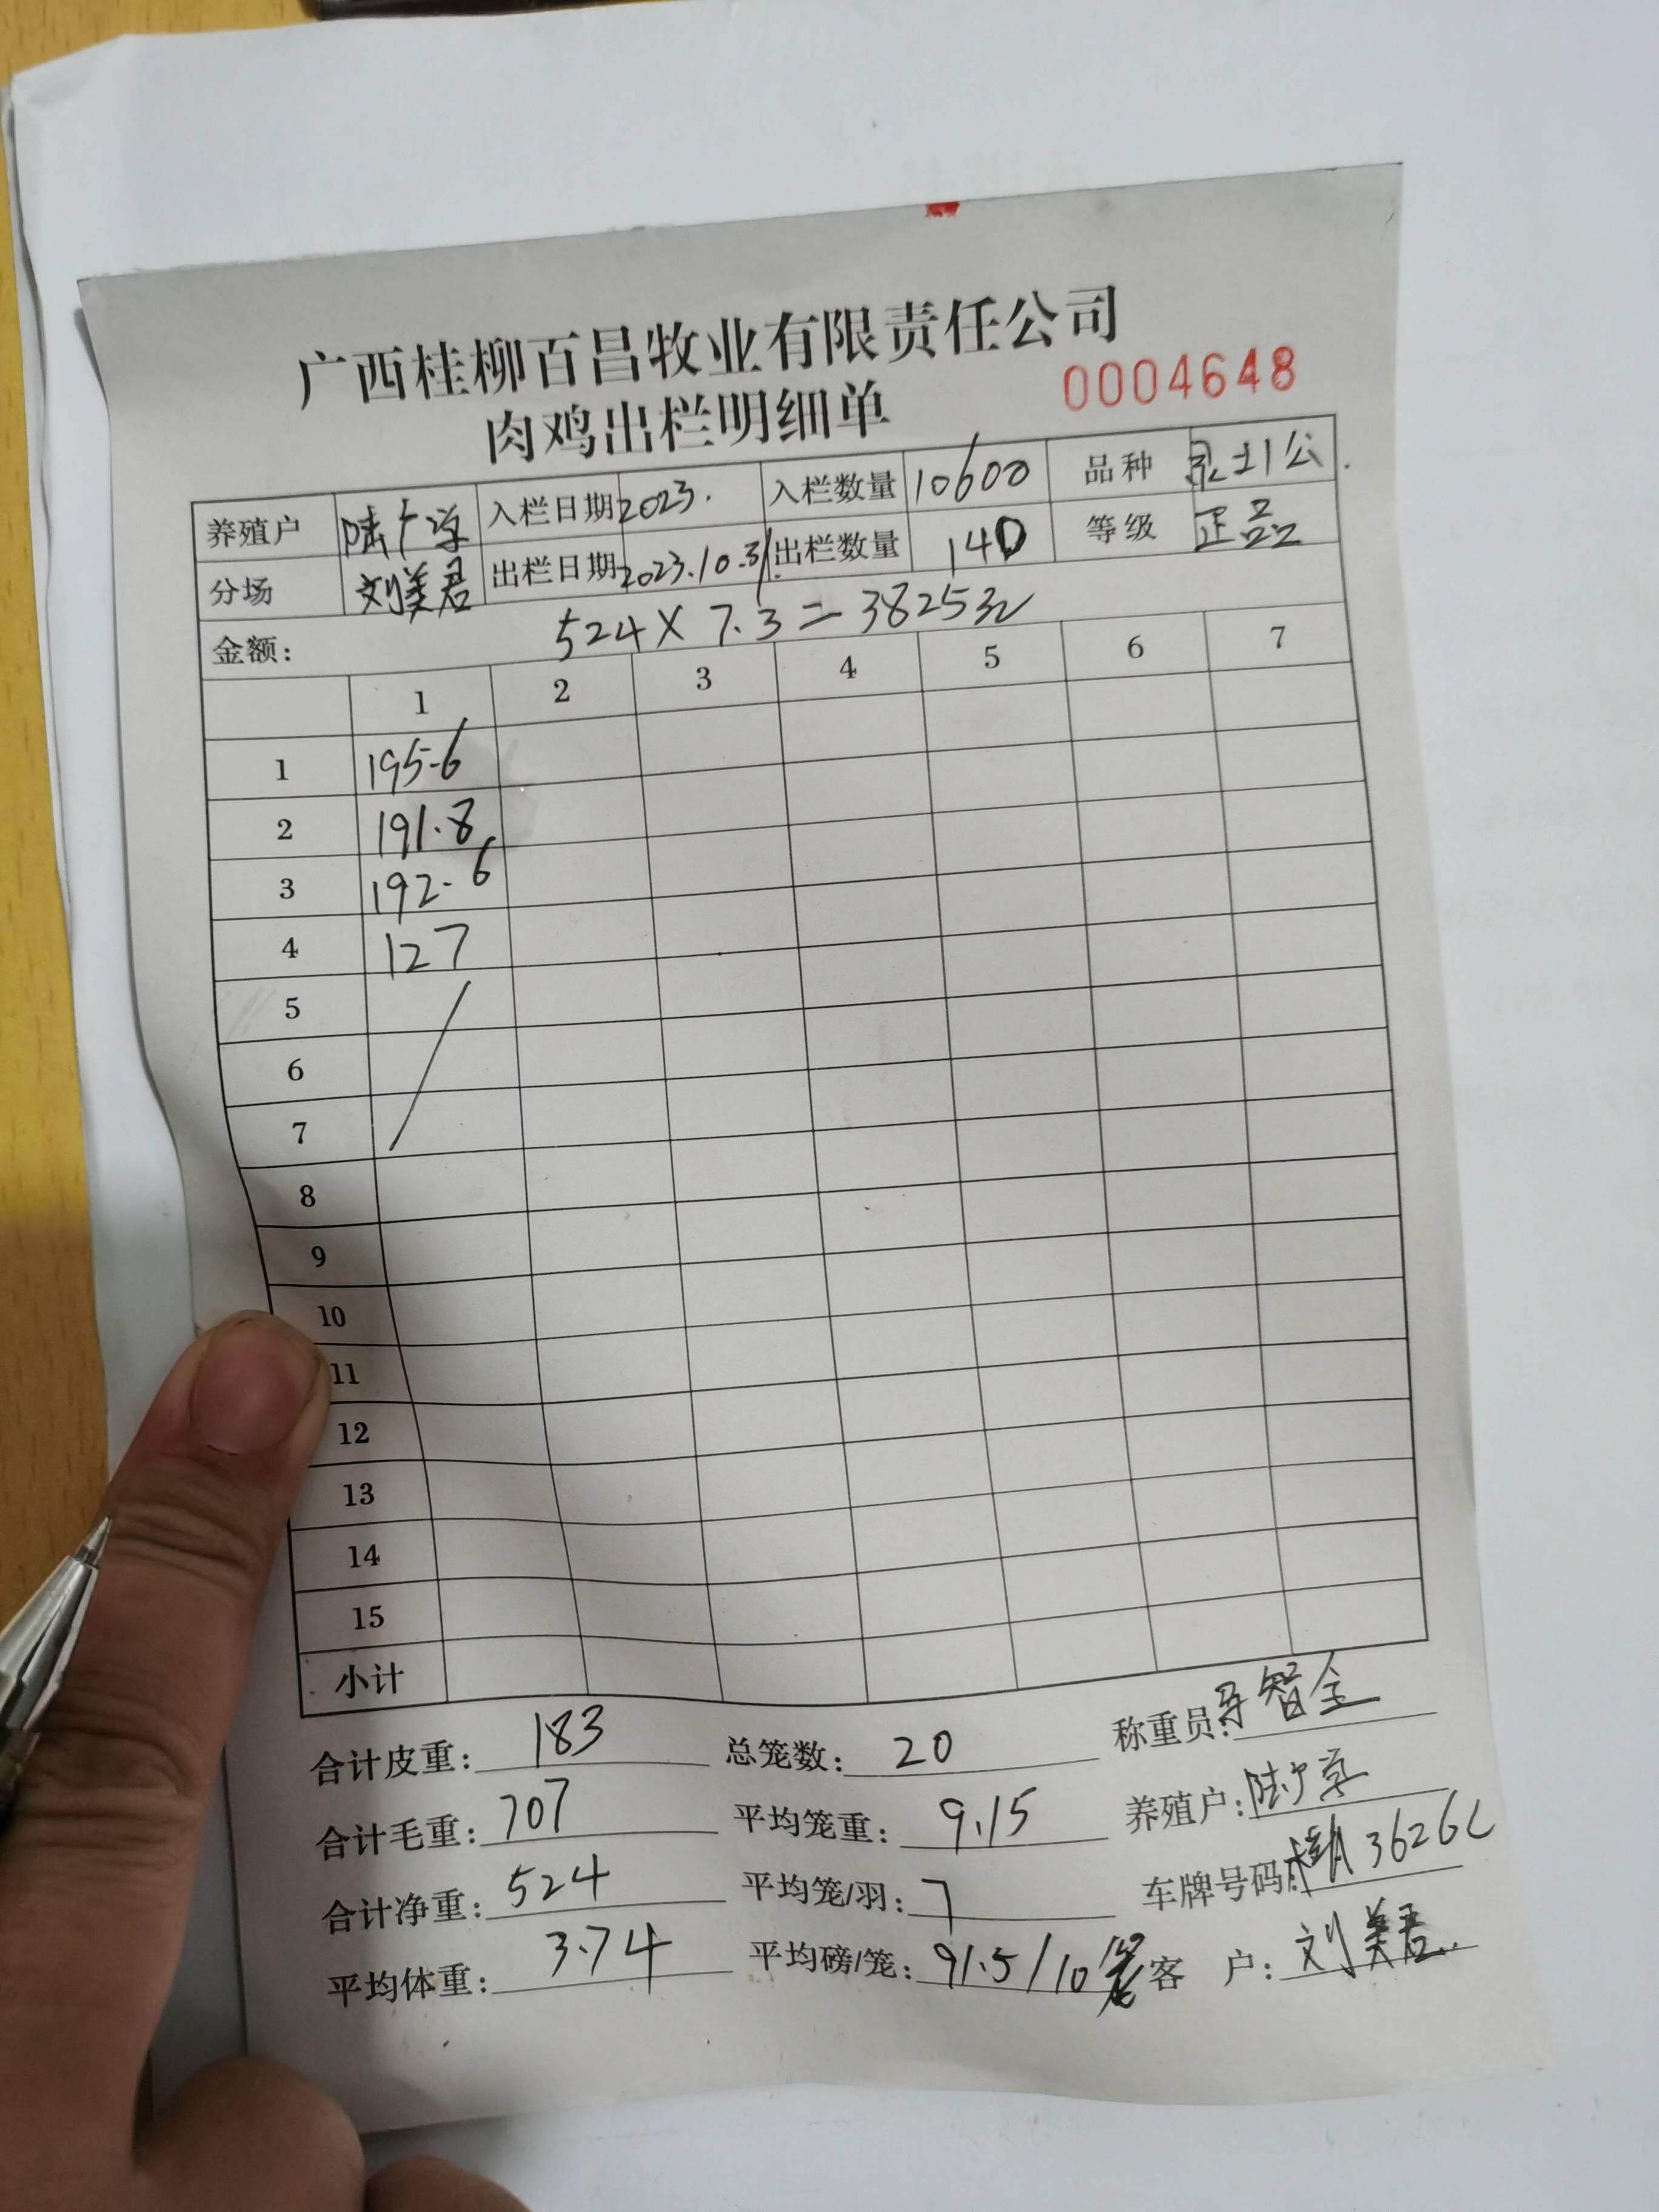 广西桂柳百昌牧业有限责任公司
肉鸡出栏明细单 0004648
养殖户 陆广学 入栏日期 2023. 入栏数量 10600 品种 土1公
分场 刘美君 出栏日期 2023.10.31 出栏数量 140 等级 正品
金额: 524×7.3=3825元
1 2 3 4 5 6 7
1 195.6
2 191.8
3 192.6
4 127
5
6
7
8
9
10
11
12
13
14
15
小计
合计皮重: 183 总笼数: 20 称重员: 智全
合计毛重: 707 平均笼重: 9.15 养殖户: 陆广学
合计净重: 524 平均笼/羽: 7 车牌号码: 桂A 3626L
平均体重: 3.74 平均磅/笼: 91.5/10笼 客户: 刘美君